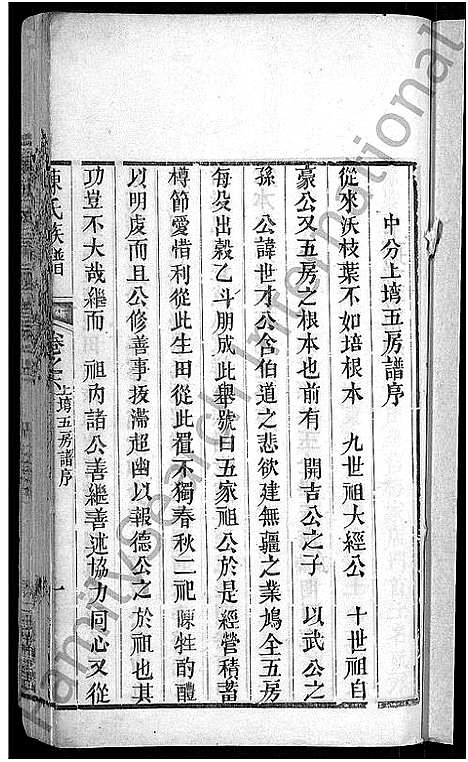 中分上塆五房譜序
從來沃枝葉不如培根本 九世祖大經公 十世祖自
豪公又五房之根本也前有 開吉公之子 以武公之
孫 公諱世才公含伯道之悲欲建無疆之業鳩全五房
每殳出穀乙斗朋成此舉號曰五家祖公於是經營積蓄
樽節愛惜利從此生田從此置不獨春秋二祀陳牲酌醴
以明虔而且公修善事拔滯超幽以報德公之於祖也其
功豈不大哉繼而 祖丙諸公善繼善述協力同心又從
陳氏族譜 卷之 上塆五房譜序 一
familysearch International